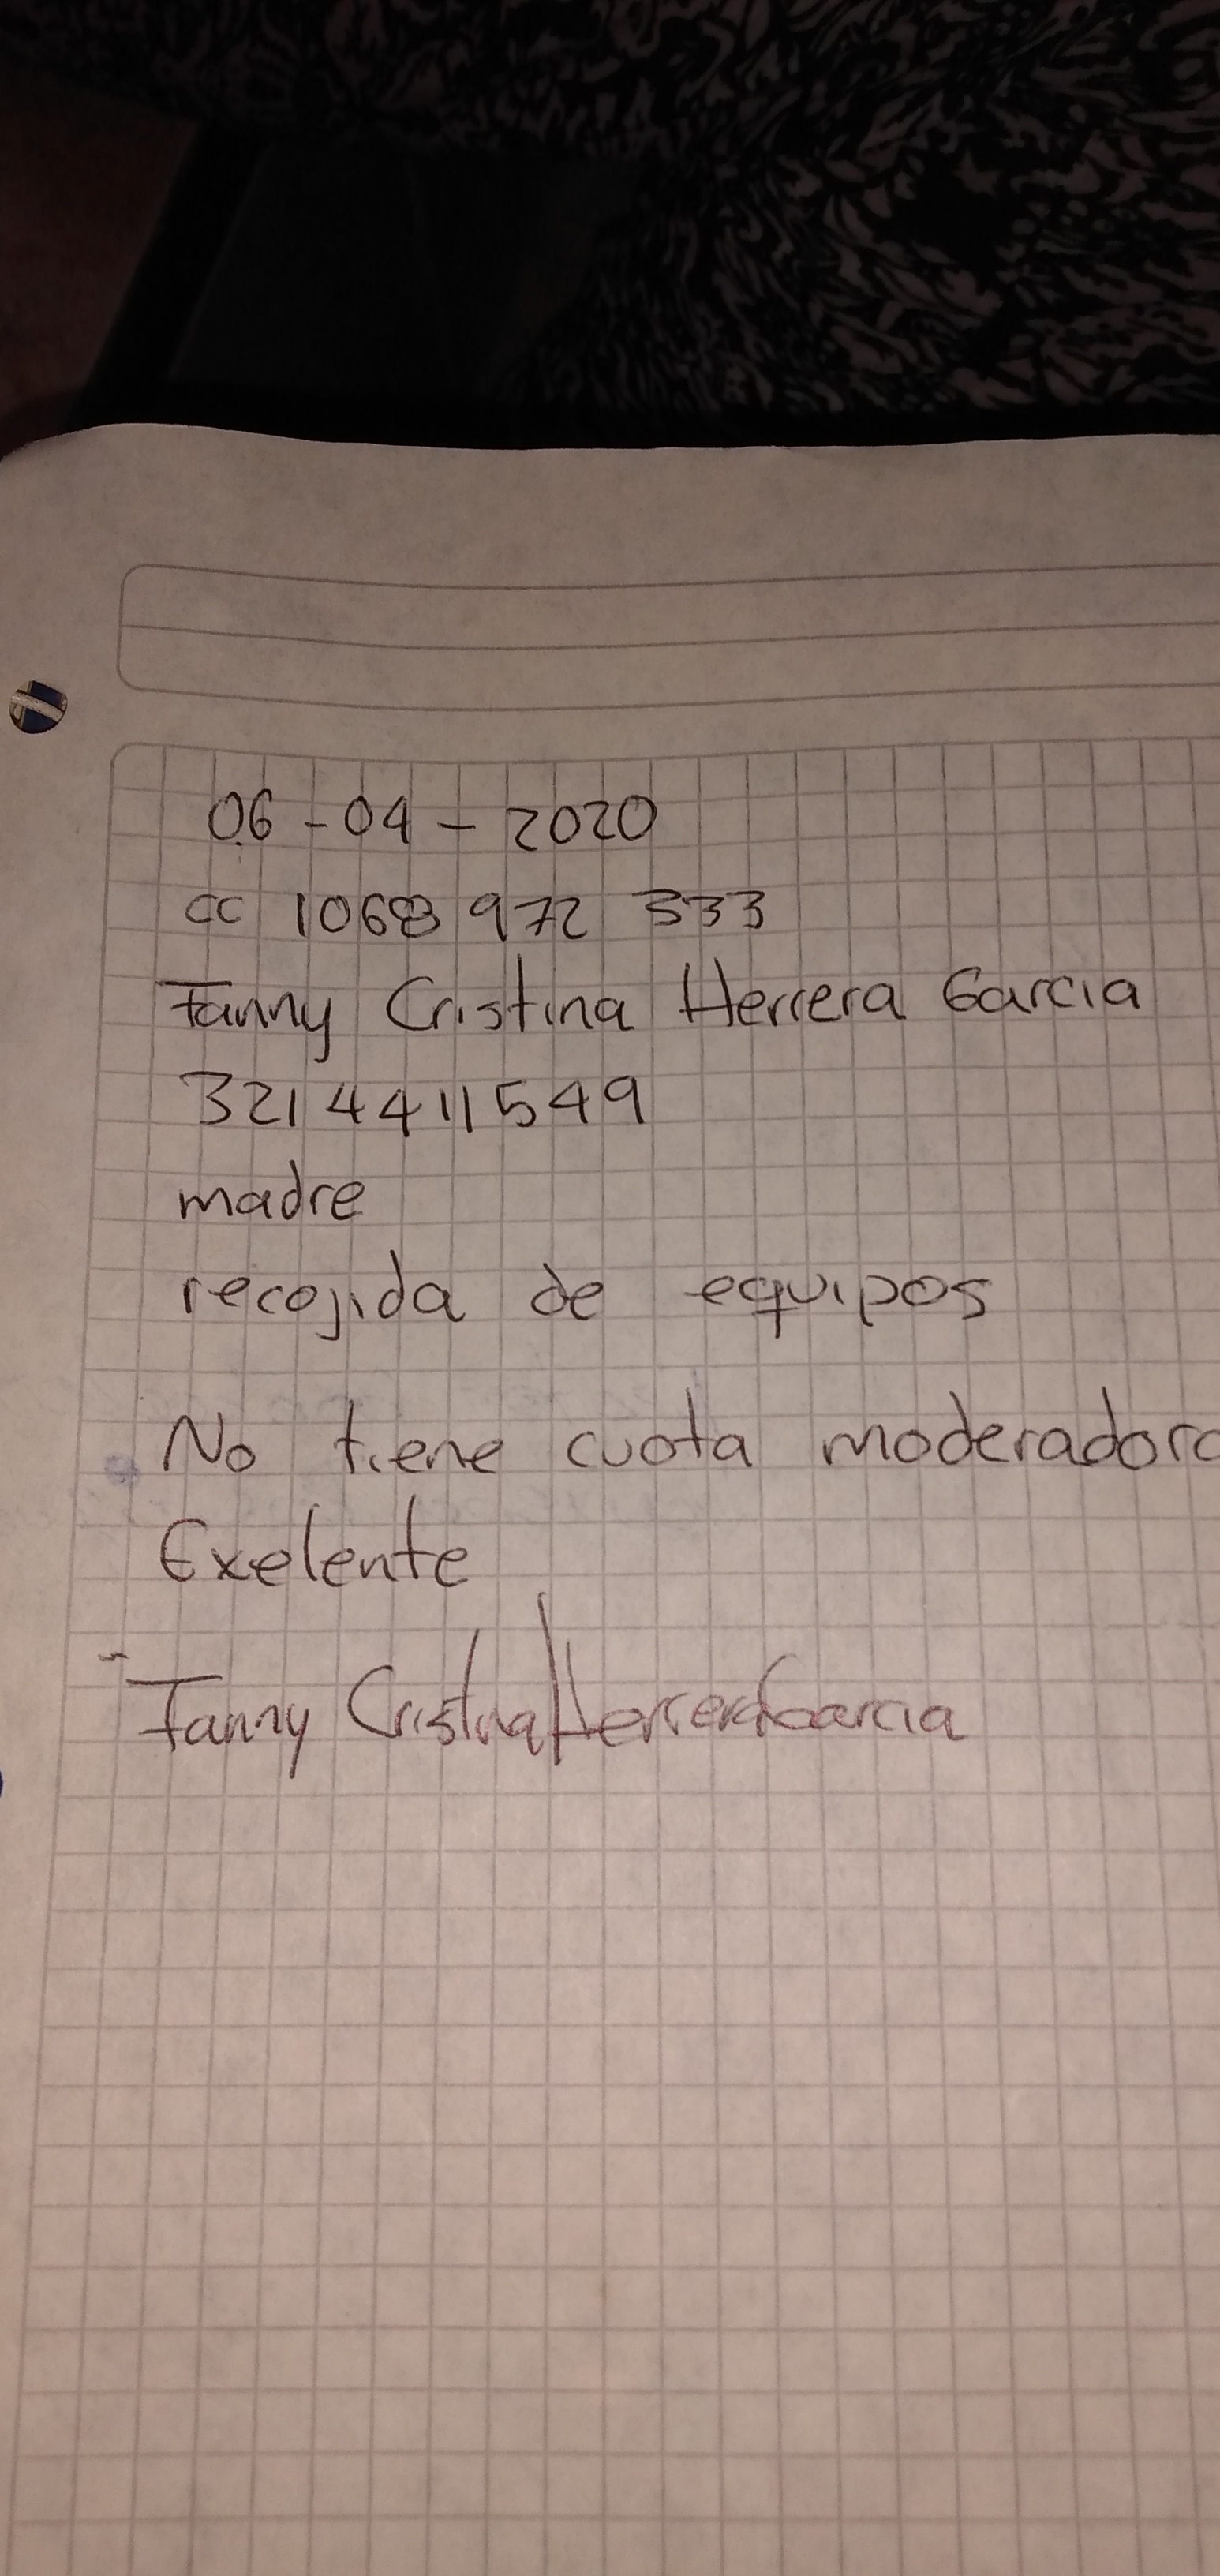 06-04-2020
CC 1068 972 333
Fanny Cristina Herrera Garcia
321 44 11 549
madre
recojida de equipos
No tiene cuota moderadora
Exelente
Fanny Cristina Herrera Garcia